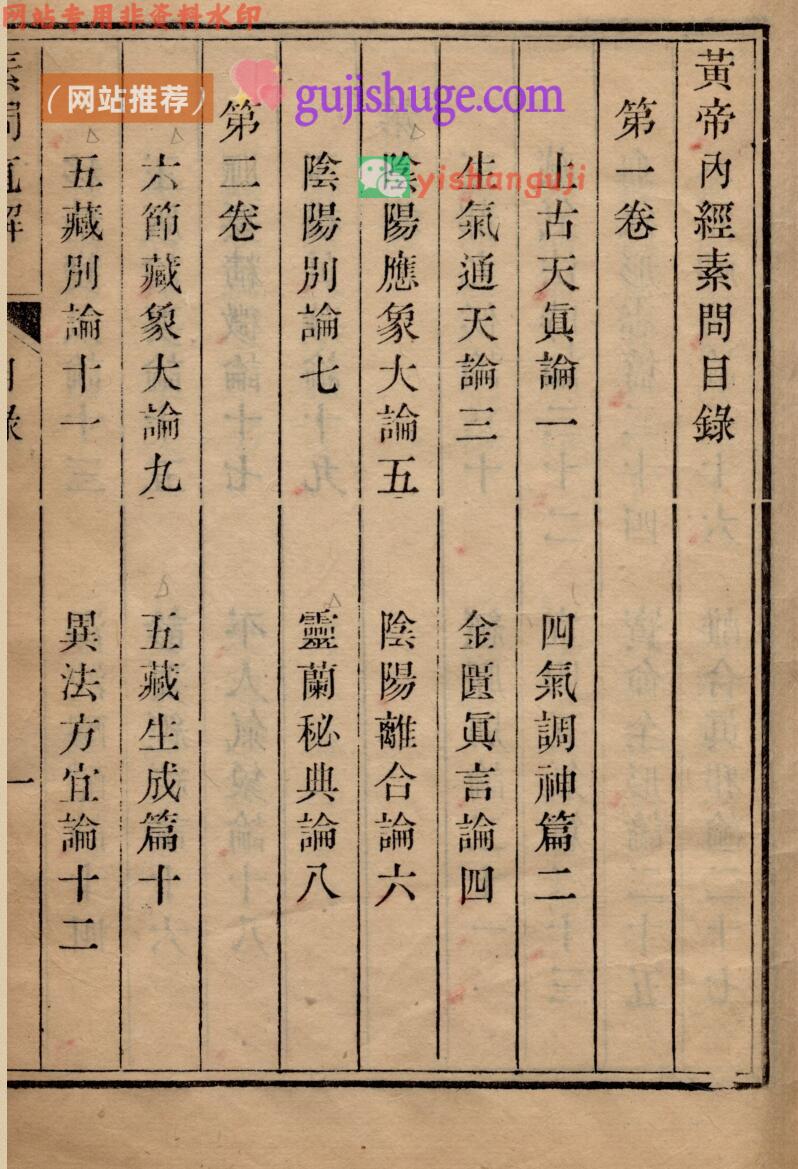 网站专用非资料水印
（网站推荐）
gujishuge.com
yishanguji
黃帝內經素問目錄
第一卷
上古天眞論一　四氣調神篇二
生氣通天論三　金匱眞言論四
陰陽應象大論五　陰陽離合論六
陰陽別論七　靈蘭秘典論八
第二卷
六節藏象大論九　五藏生成篇十
五藏別論十一　異法方宜論十二
解　目錄　一